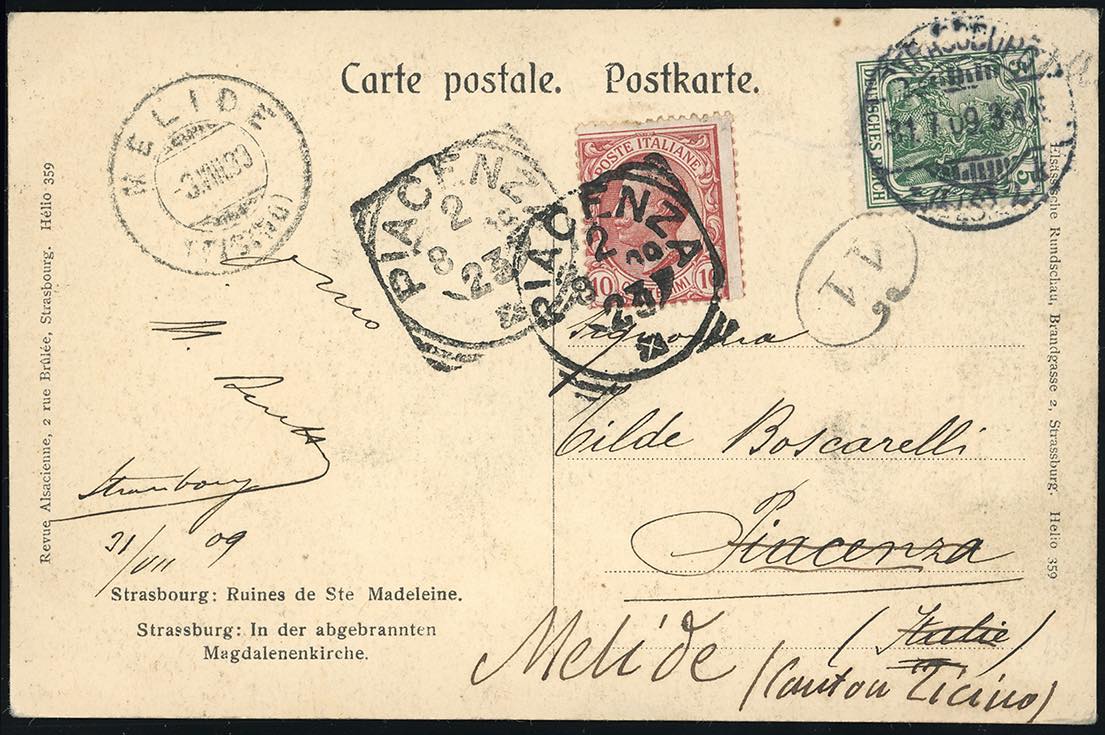 Carte postale. Postkarte.
MELIDE
-3.VIII.09
(TICINO)
PIACENZA
2
8
23
POSTE ITALIANE
10 10
PIACENZA
2
8 09
23
DEUTSCHES REICH
5
31.7.09. 3-4
Signorina
Tilde Boscarelli
Piacenza
(Italie)
Melide (Canton Ticino)
Strasbourg
31/VII 09
Strasbourg: Ruines de Ste Madeleine.
Strassburg: In der abgebrannten
Magdalenenkirche.
Revue Alsacienne, 2 rue Brûlée, Strasbourg. Hélio 359
Elsässische Rundschau, Brandgasse 2, Strassburg. Helio 359